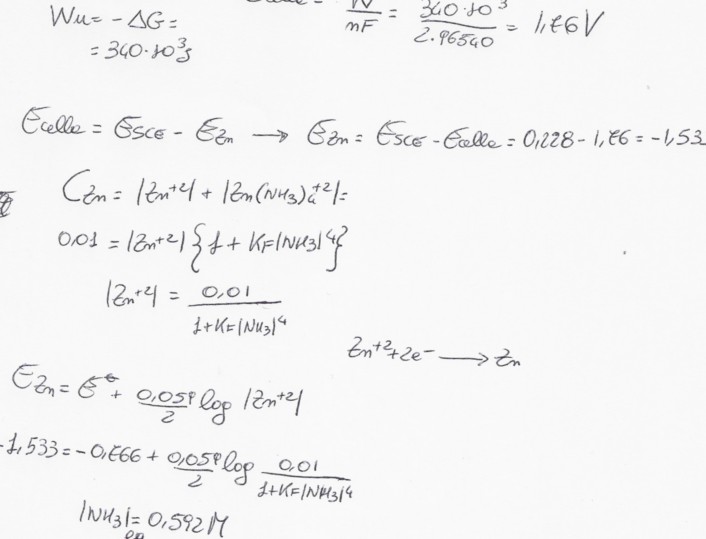 Wu = - ΔG =
= 340·10³ J
W/nF = 340·10³/2·96540 = 1,76 V
Ecelle = ESCE - EZn → EZn = ESCE - Ecelle = 0,228 - 1,76 = -1,53
CZn = |Zn+2| + |Zn(NH3)4+2| =
0,01 = |Zn+2| {1 + KF|NH3|4}
|Zn+2| = 0,01/1+KF|NH3|4
Zn+2 + 2e- → Zn
EZn = E° + 0,059/2 log |Zn+2|
-1,533 = -0,766 + 0,059/2 log 0,01/1+KF|NH3|4
|NH3| = 0,592 M